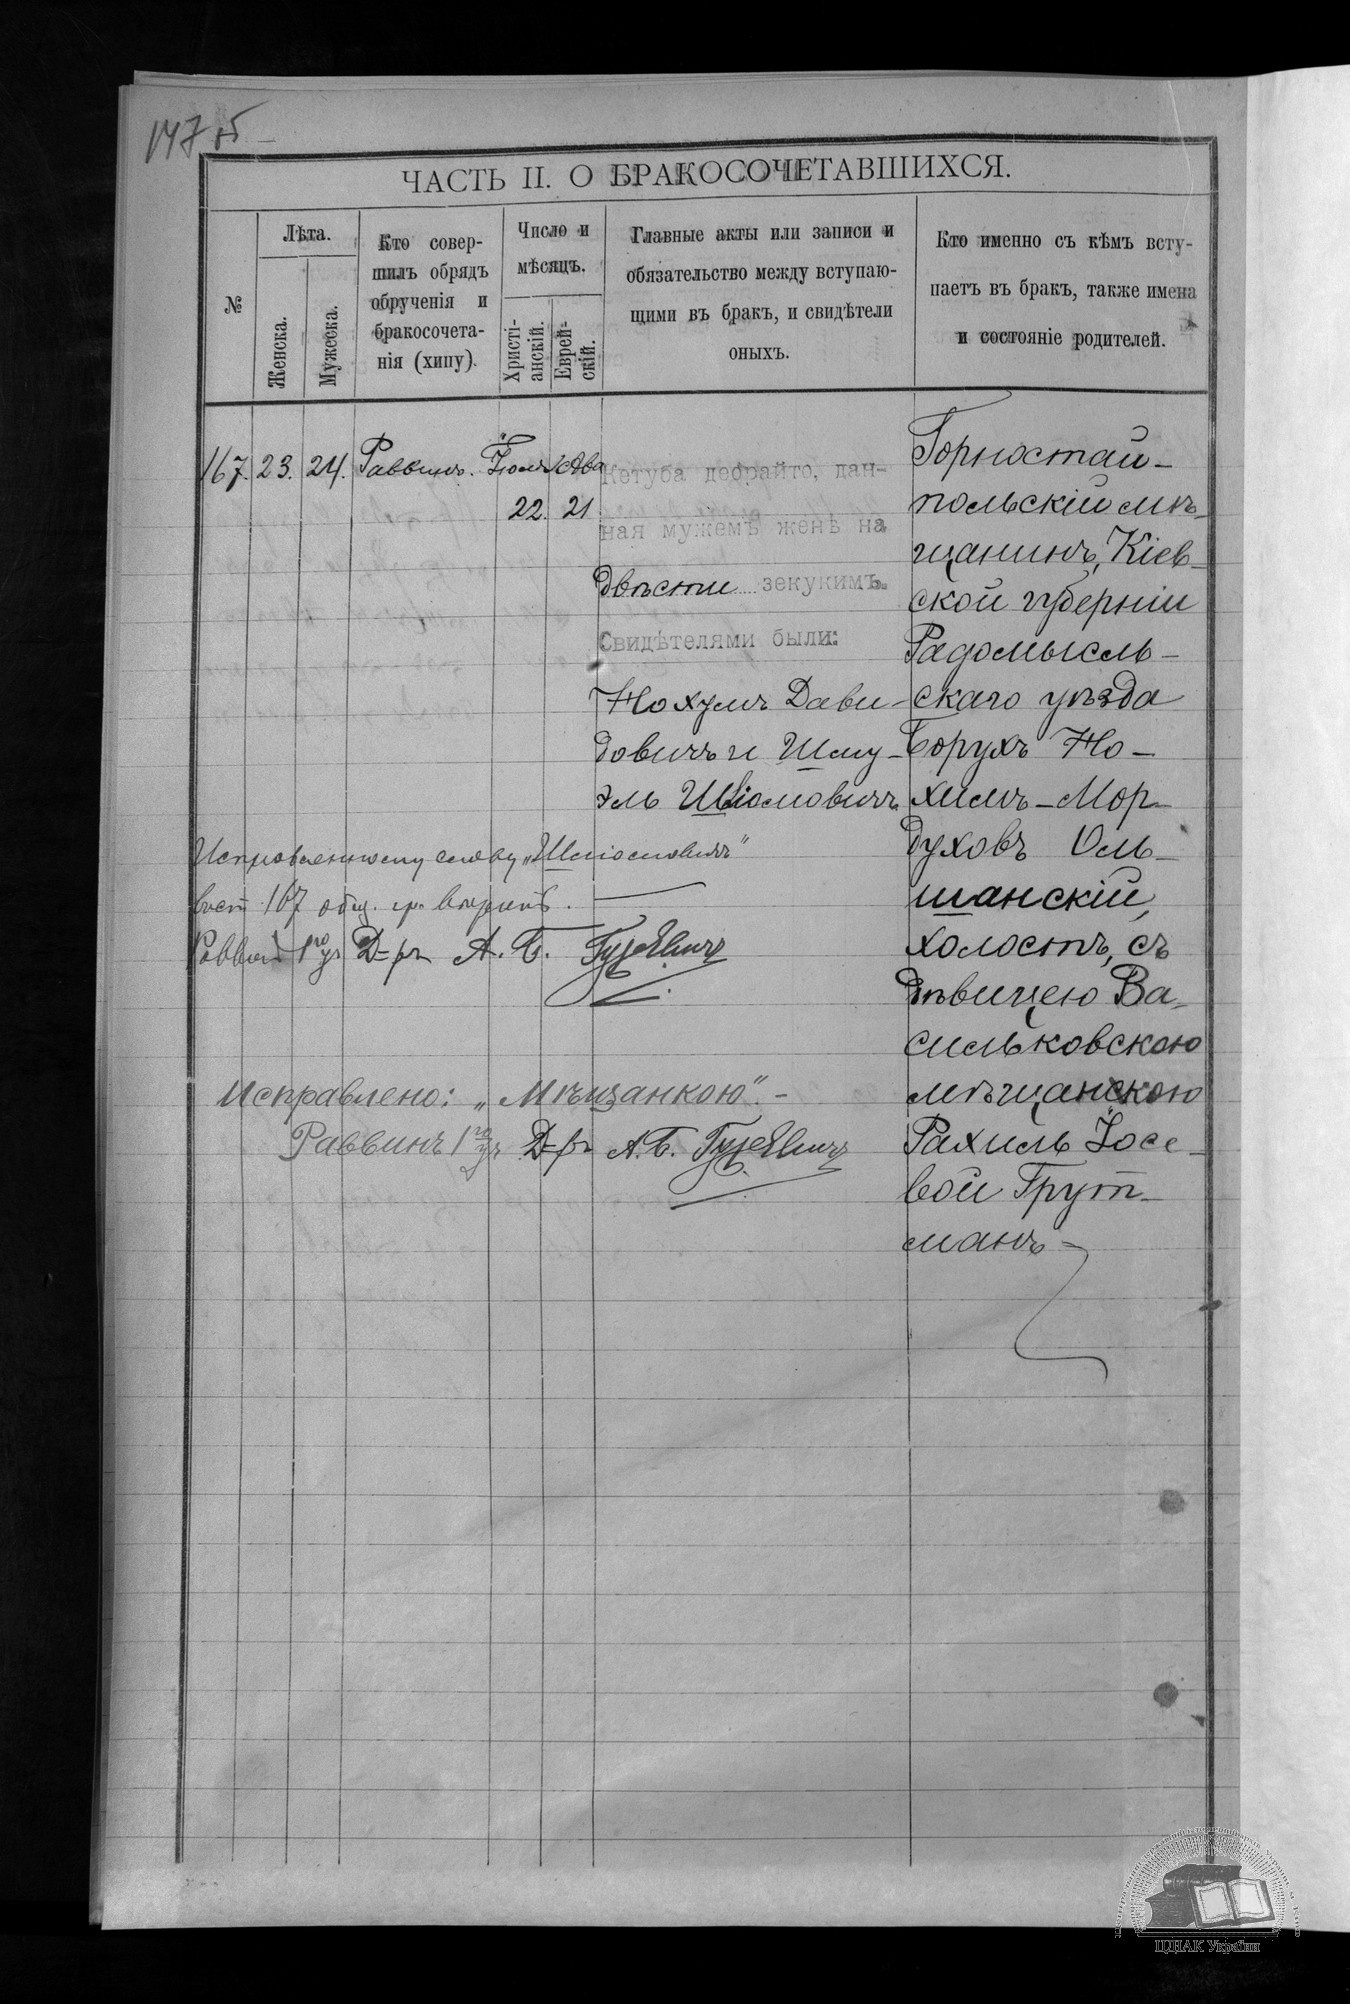 147 об
ЧАСТЬ II. О БРАКОСОЧЕТАВШИХСЯ.
№
Лѣта.
Женска.
Мужеска.
Кто совер-
шилъ обрядъ
обрученія и
бракосочета-
нія (хипу).
Число и
мѣсяцъ.
Христі-
анскій.
Еврей-
скій.
Главные акты или записи и
обязательство между вступаю-
щими въ бракъ, и свидѣтели
оныхъ.
Кто именно съ кѣмъ всту-
паетъ въ бракъ, также имена
и состояніе родителей.
167. 23. 24. Раввинъ. Іюля Ава
22. 21.
Кетуба дебрайто, дан-
ная мужемъ женѣ на
двѣсти зекукимъ.
Свидѣтелями были:
Нохумъ Дави-
довичъ и Шму-
эль Шліомовичъ
Горностай-
польскій мѣ-
щанинъ, Кіев-
ской губерніи
Радомысль-
скаго уѣзда
Борухъ Но-
химъ-Мор-
духовъ Оль-
шанскій,
холостъ, съ
дѣвицею Ва-
сильковскою
мѣщанскою
Рахиль Іосе-
вой Грут-
манъ
Исправленному слову „Шліомовичъ"
въ ст 167 общ. гр. вѣрить.
Раввинъ 1го уч Д-ръ А. Б. Гуревичъ
Исправлено: „Мѣщанкою". -
Раввинъ 1го уч Д-ръ А. Б. Гуревичъ
ЦДІАК України